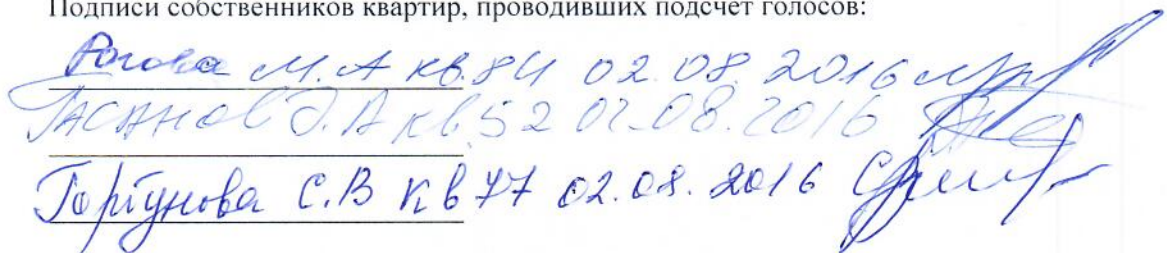 Подписи собственников квартир, проводивших подсчет голосов:
М.А кв.84 02.08.2016
Гасанов Э.А кв.52 02.08.2016
Горгунова С.В кв 77 02.08.2016